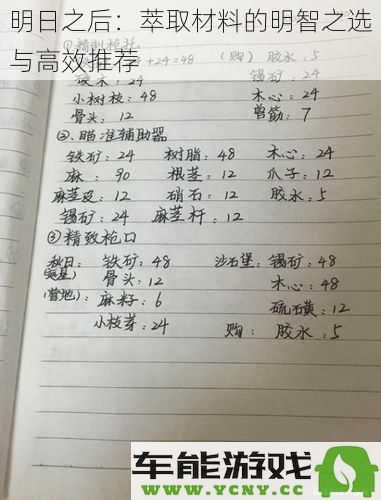 明日之后：萃取材料的明智之选
与高效推荐
24=48 (购) 胶水：5
硬木：24 锡矿：24
小树枝：48 木心：24
骨头：12 兽筋：7
②、瞄准辅助器
铁矿：24 树脂：48 木心：24
麻：90 根茎：12 爪子：12
麻茎皮：12 硝石：12 胶水：5
锡矿：24 麻茎杆：12
③精致枪口
秋日：铁矿：48 沙石堡：锡矿：48
骨头：12 木心：48
(营地)：麻籽：6 硫磺：12
小枝芽：24 购：胶水：5
车能游戏
WWW.YCNY.CC